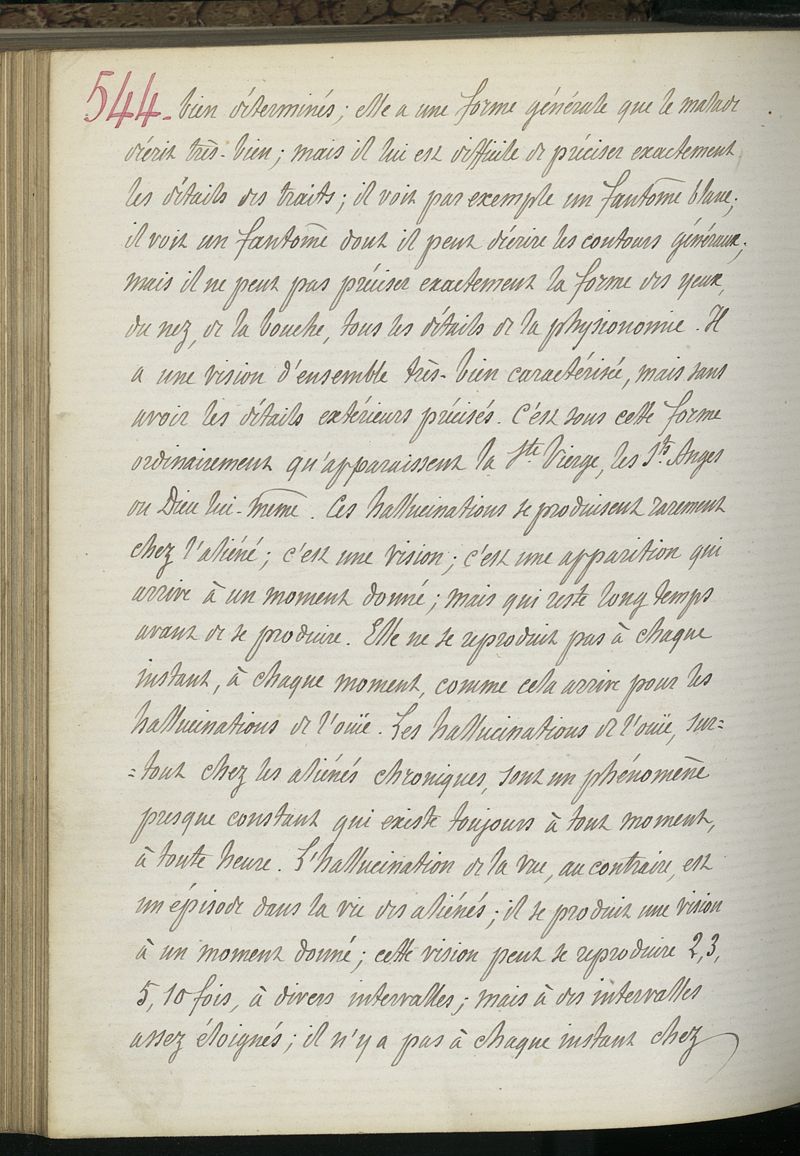 544. bien déterminés; elle a une forme générale que le malade
décrit très-bien; mais il lui est difficile de préciser exactement
les détails des traits; il voit par exemple un fantôme blanc;
il voit un fantôme dont il peut décrire les contours généraux;
mais il ne peut pas préciser exactement la forme des yeux,
du nez, de la bouche, tous les détails de la physionomie. Il
a une vision d'ensemble très-bien caractérisée, mais sans
avoir les détails extérieurs précisés. C'est sous cette forme
ordinairement qu'apparaissent la Ste Vierge, les Sts Anges
ou Dieu lui-même. Ces hallucinations se produisent rarement
chez l'aliéné; c'est une vision; c'est une apparition qui
arrive à un moment donné; mais qui reste long temps
avant de se produire. Elle ne se reproduit pas à chaque
instant, à chaque moment, comme cela arrive pour les
hallucinations de l'ouïe. Les hallucinations de l'ouïe, sur=
=tout chez les aliénés chroniques, sont un phénomène
presque constant qui existe toujours à tout moment,
à toute heure. L'hallucination de la vue, au contraire, est
un épisode dans la vie des aliénés; il se produit une vision
à un moment donné; cette vision peut se reproduire 2, 3,
5, 10 fois, à divers intervalles; mais à des intervalles
assez éloignés; il n'y a pas à chaque instant chez